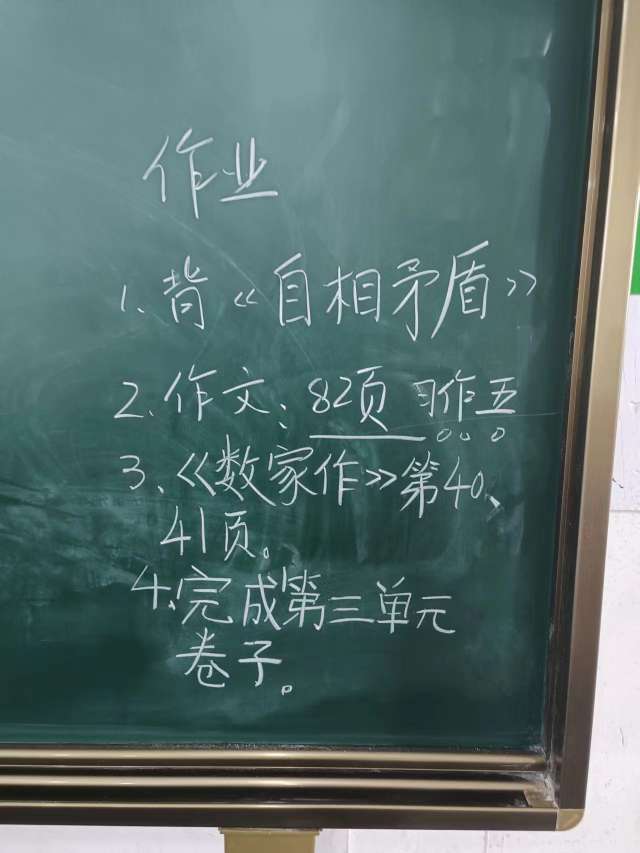 作业
1.背《自相矛盾》
2.作文:82页 习作五
3、《数家作》第40、
41页。
4.完成第三单元
卷子。